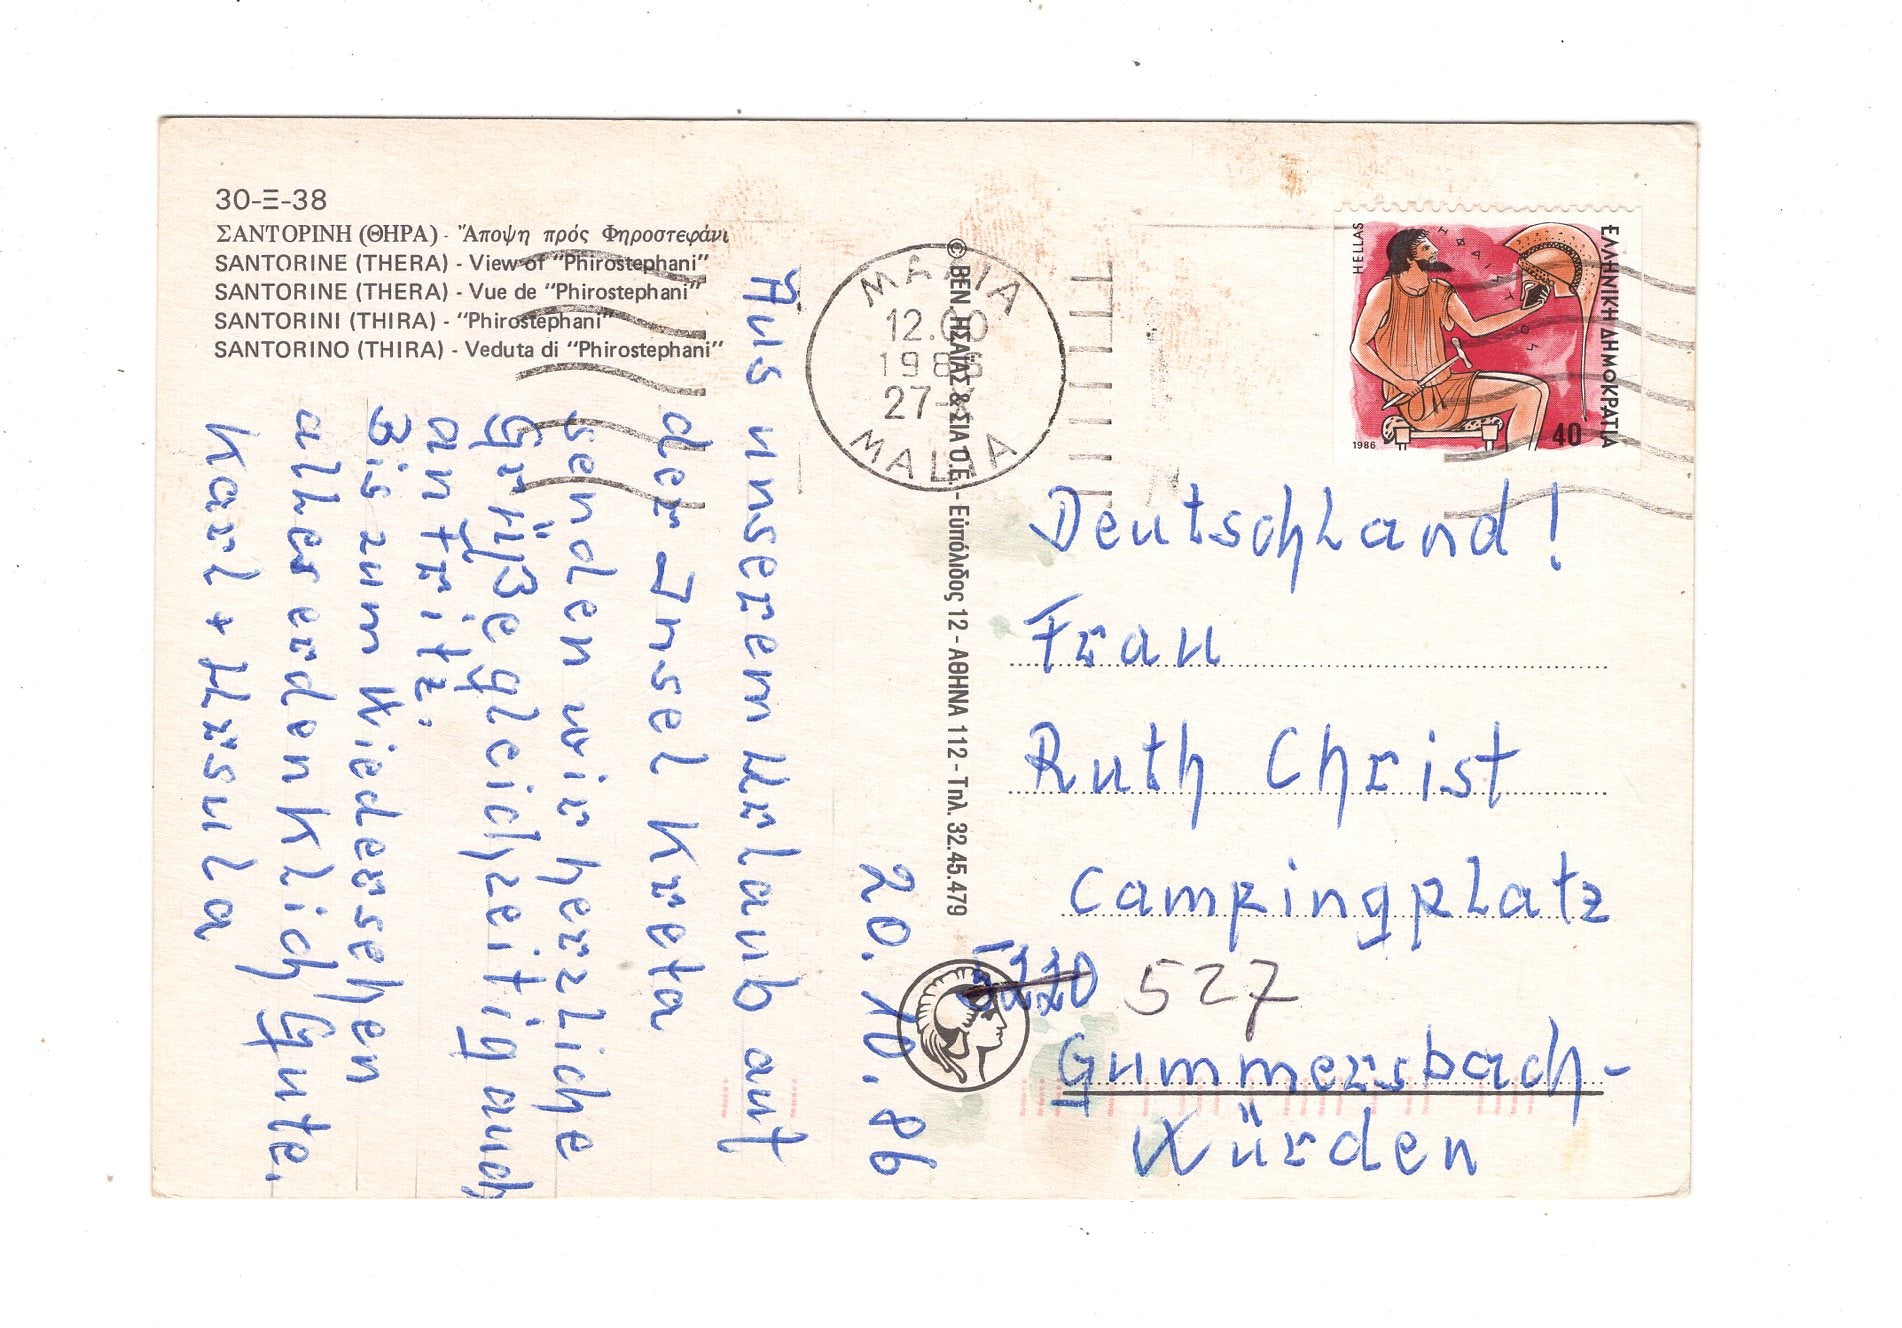 30-Ξ-38
ΣΑΝΤΟΡΙΝΗ (ΘΗΡΑ) - Ἄποψη πρός Φηροστεφάνι
SANTORINE (THERA) - View of "Phirostephani"
SANTORINE (THERA) - Vue de "Phirostephani"
SANTORINI (THIRA) - "Phirostephani"
SANTORINO (THIRA) - Veduta di "Phirostephani"
20.10.86
Aus unserem Urlaub auf
der Insel Kreta
senden wir herzliche
Grüße gleichzeitig auch
an Fritz.
Bis zum Wiedersehen
alles erdenklich Gute.
Karl + Ursula
© ΒΕΝ. ΗΣΑΪΑΣ & ΣΙΑ Ο.Ε. - Εὐπόλιδος 12 - ΑΘΗΝΑ 112 - Τηλ. 32.45.479
ΜΑΛΙΑ
12.00
1986
27-
MALIA
HELLAS
ΗΦΑΙΣΤΟΣ
ΕΛΛΗΝΙΚΗ ΔΗΜΟΚΡΑΤΙΑ
1986
40
Deutschland!
Frau
Ruth Christ
Campingplatz
527
Gummersbach-
Würden